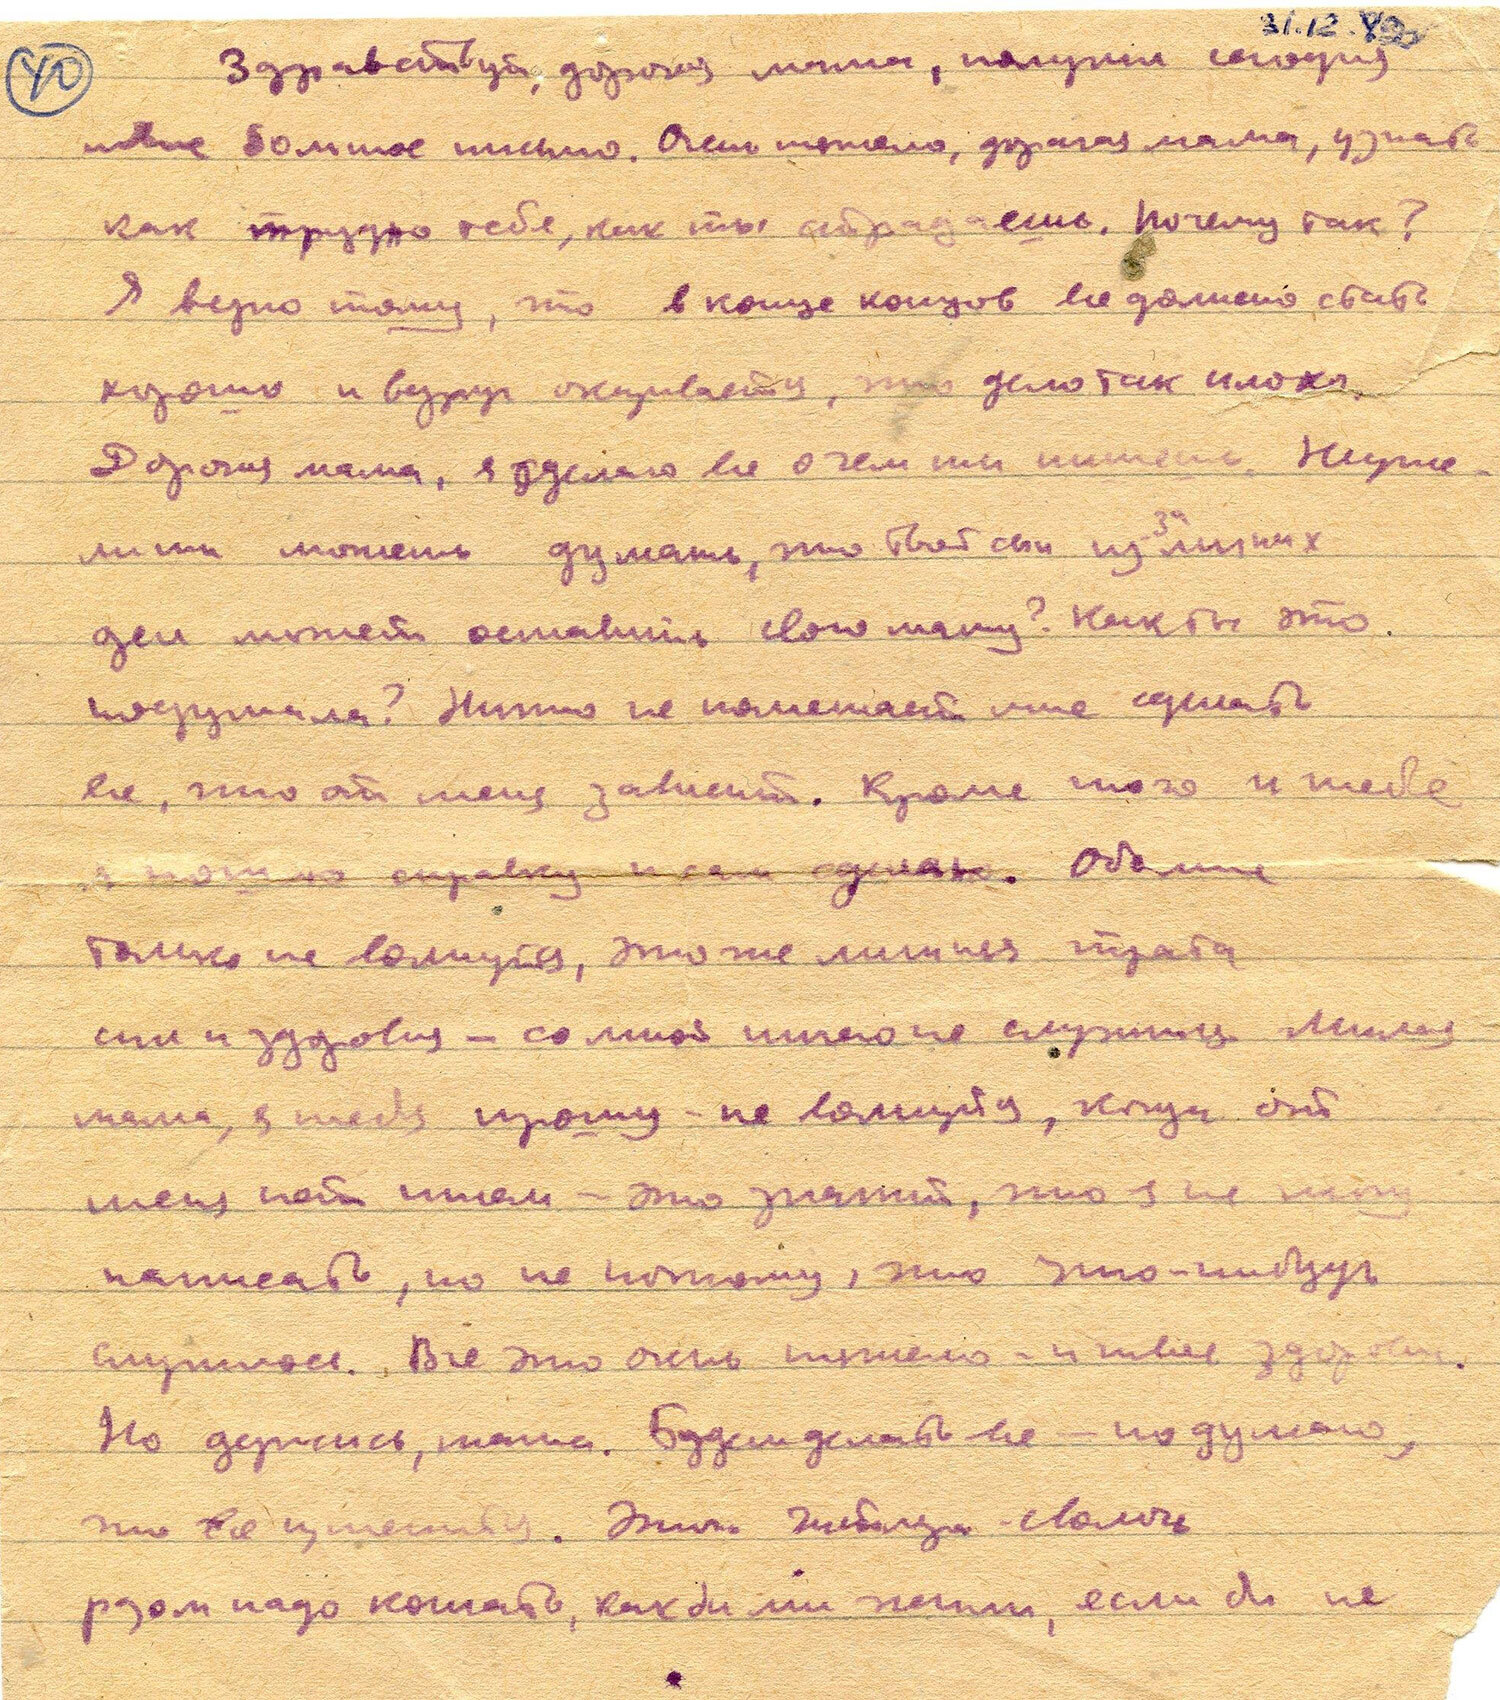 40
31.12.42
Здравствуй, дорогая мама, получил сегодня
твое большое письмо. Очень тяжело, дорогая мама, узнать
как трудно тебе, как ты страдаешь. Почему так?
Я верю тому, что в конце концов все должно стать
хорошо и вдруг оказывается, что дело так плохо.
Дорогая мама, я сделаю все о чем ты пишешь. Неуже-
ли ты можешь думать, что твой сын из за личных
дел может оставить свою маму? Как ты это
подумала? Ничто не помешает мне сделать
все, что от меня зависит. Кроме того и тебе
я пошлю справку и сам сделаю. Обо мне
только не волнуйся, это же лишняя трата
сил и здоровья – со мной ничего не случится. Милая
мама, я тебя прошу – не волнуйся, когда от
меня нет писем – это значит, что я не могу
написать, но не потому, что что-нибудь
случилось. Все это очень тяжело – и твое здоровье.
Но держись, мама. Будем делать все – я думаю,
что все уладится. Этого сволочь
надо кончать, как бы мы жили, если бы не